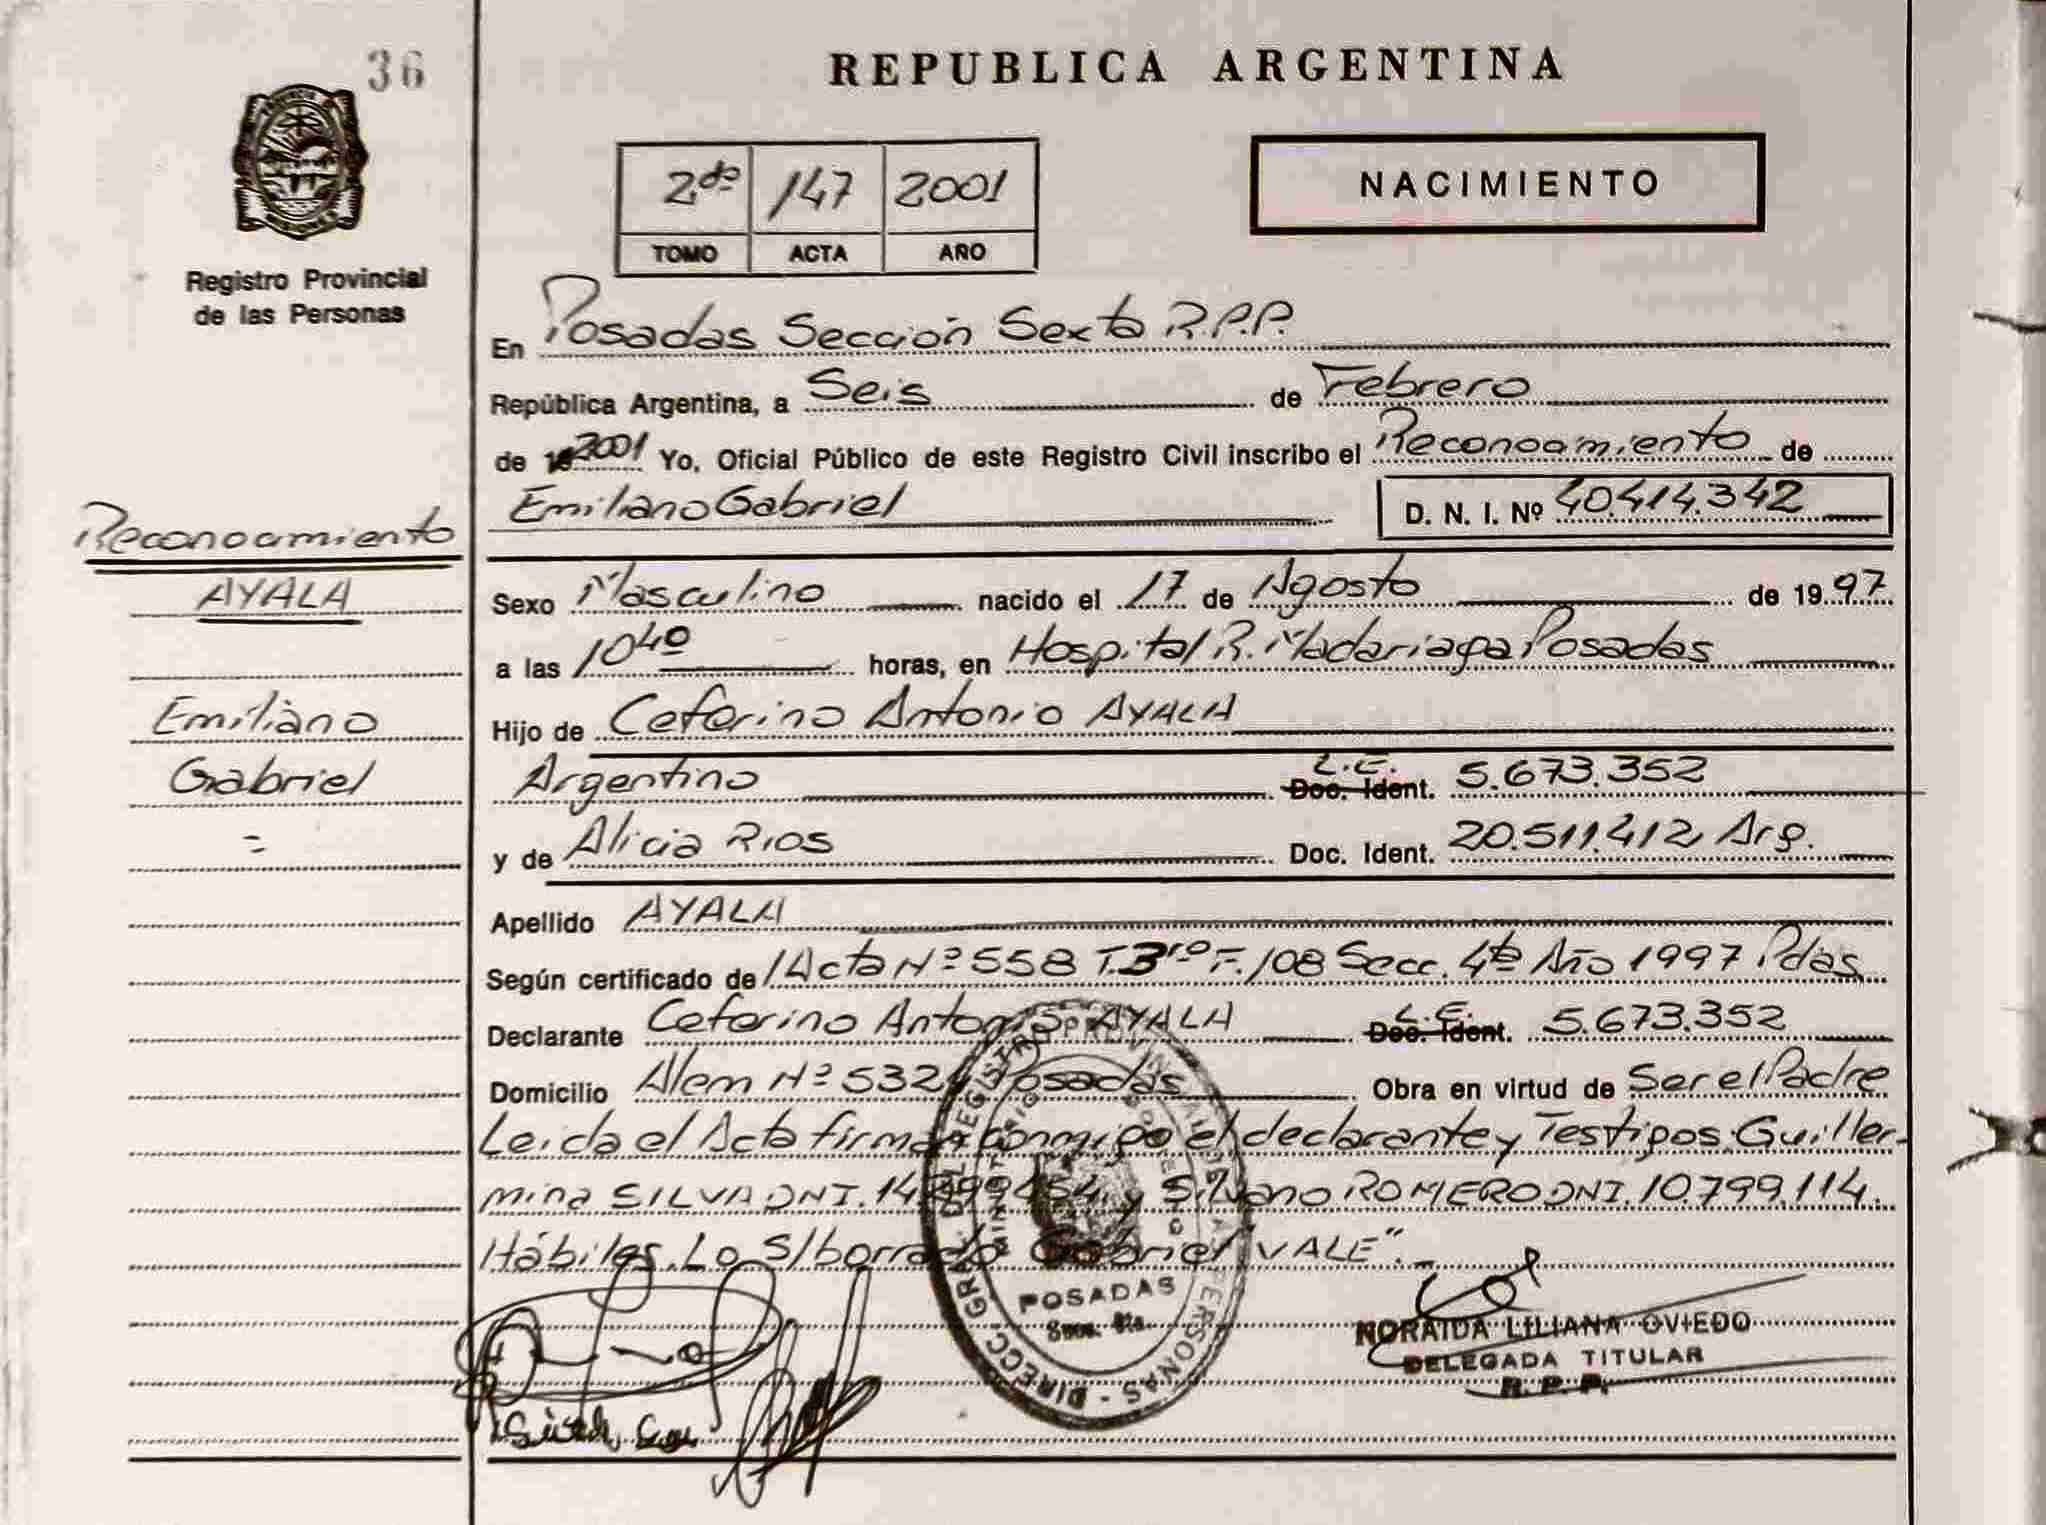 36
REPUBLICA ARGENTINA
2do 147 2001
TOMO ACTA AÑO
NACIMIENTO
Registro Provincial
de las Personas
En Posadas Sección Sexta R.P.P.
República Argentina, a Seis de Febrero
de 19 2001 Yo, Oficial Público de este Registro Civil inscribo el Reconocimiento de
Emiliano Gabriel D. N. I. Nº 40.414.342
Reconocimiento
AYALA
Emiliano
Gabriel
=
Sexo Masculino nacido el 17 de Agosto de 1997
a las 10 40 horas, en Hospital R. Madariaga Posadas
Hijo de Ceferino Antonio AYALA
Argentino L.E. Doc. Ident. 5.673.352
y de Alicia RIOS Doc. Ident. 20.511.412 Arg.
Apellido AYALA
Según certificado de Acta Nº 558 T.3ro F.108 Secc. 4ta Año 1997 Pdas
Declarante Ceferino Antonio AYALA L.E. Doc. Ident. 5.673.352
Domicilio Alem Nº 532 Posadas Obra en virtud de Ser el Padre
Leida el Acta firman conmigo el declarante y Testigos: Guiller-
mina SILVA DNI. y Silvano ROMERO DNI. 10.799.114.
Hábiles. Lo S/borrado "Gabriel VALE".
DIRECC. GRAL. DEL REGISTRO PROVINCIAL DE LAS PERSONAS
POSADAS
NORAIDA LILIANA OVIEDO
DELEGADA TITULAR
R. P. P.